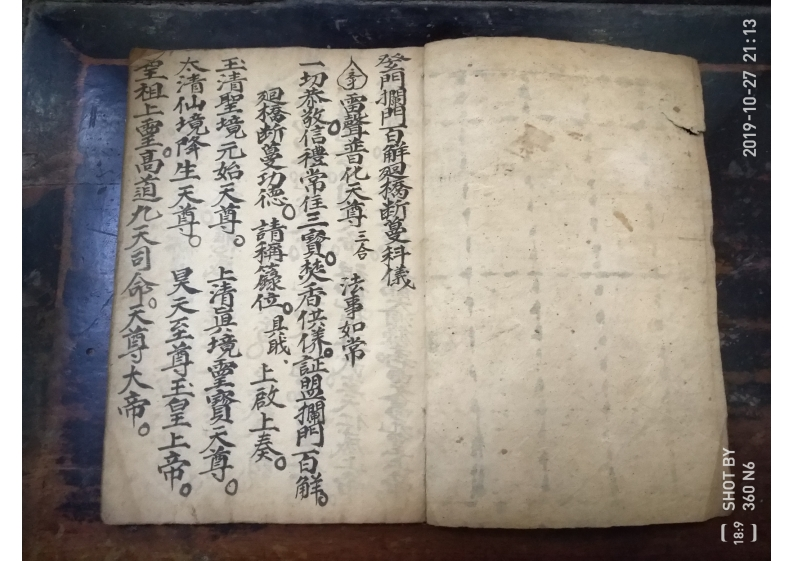 登門攔門百解廻橋斷蔓科儀
雷聲普化天尊 三合 法事如常
一切恭敬信禮常住三寶。焚香供養。証盟攔門百解。
廻橋斷蔓功德。請稱籙位。具戝、上啟上奏。
玉清聖境元始天尊。上清眞境靈寳天尊。
太清仙境降生天尊。昊天至尊玉皇上帝。
聖祖上靈高道九天司命。天尊大帝。
2019-10-27 21:13
SHOT BY
360 N6
18:9